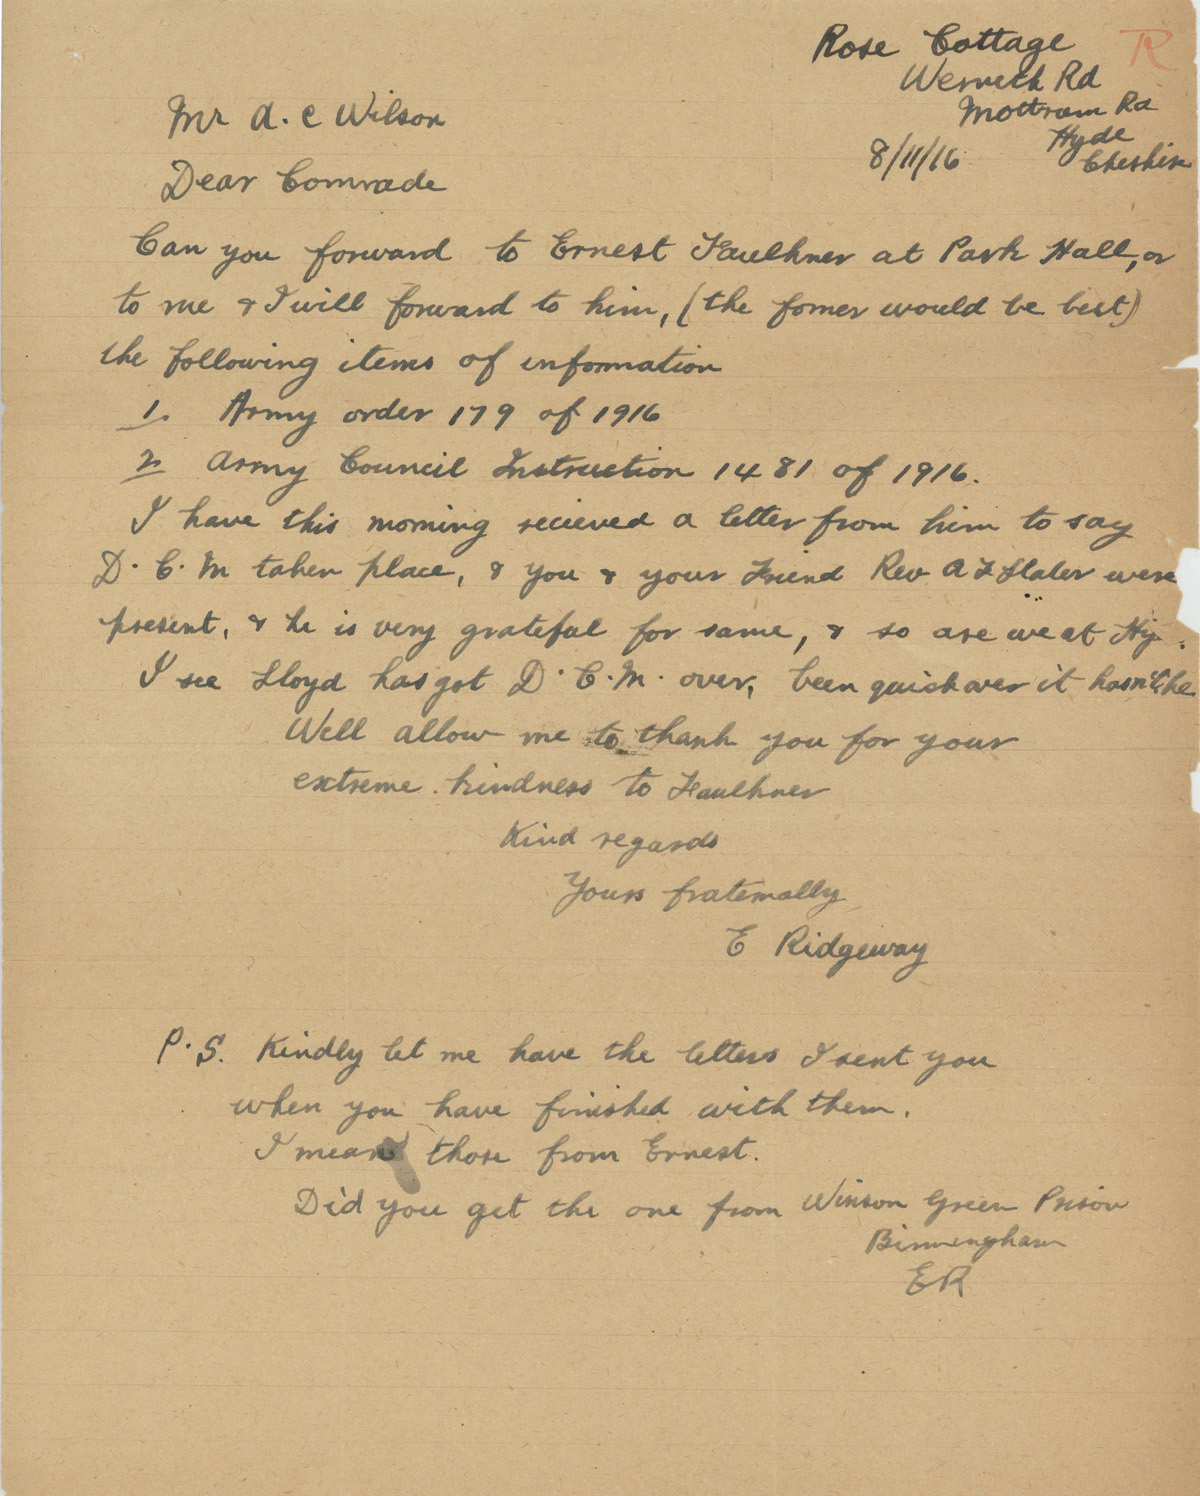 Rose Cottage R
Werneth Rd
Mottram Rd
Hyde
Cheshire
8/11/16
Mr A. C Wilson
Dear Comrade
Can you forward to Ernest Faulkner at Park Hall, or
to me & I will forward to him, (the former would be best)
the following items of information
1. Army order 179 of 1916
2 Army Council Instruction 1481 of 1916.
I have this morning recieved a letter from him to say
D. C. M taken place, & you & your Friend Rev A F Slater were
present, & he is very grateful for same, & so are we at Hy
I see Lloyd has got D. C. M. over, been quick over it hasn't he
Well allow me to thank you for your
extreme kindness to Faulkner
Kind regards
Yours fraternally
E Ridgeway
P. S. Kindly let me have the letters I sent you
when you have finished with them.
I mean those from Ernest.
Did you get the one from Winson Green Prison
Birmingham
ER